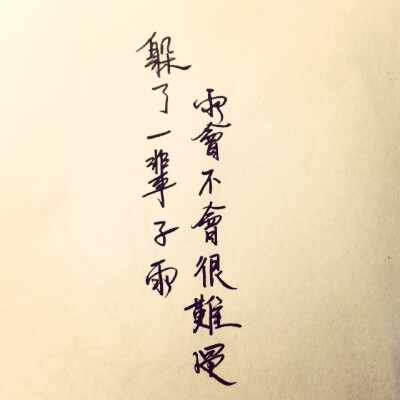 躲了一輩子雨
雨會不會很難過